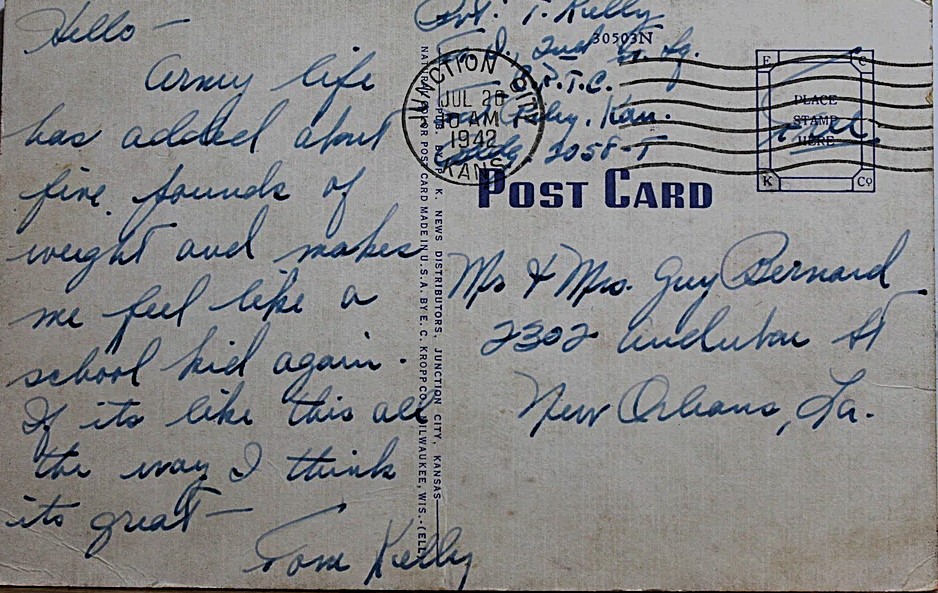 Hello —
Army life
has added about
five pounds of
weight and makes
me feel like a
school kid again.
If its like this all
the way I think
its great —
Tom Kelly
Pvt. T. Kelly
30503N
2nd
Hq.
C.R.T.C.
Riley, Kan.
Bldg. 2058-T
JUNCTION CITY
JUL 20
AM
1942
KANS.
E C
PLACE
STAMP
HERE
K Co
Free
POST CARD
Mr & Mrs. Guy Bernard
2302 Audubon St
New Orleans, La.
PUB. BY P. K. NEWS DISTRIBUTORS, JUNCTION CITY, KANSAS
NATURAL COLOR POST CARD MADE IN U.S.A. BY E. C. KROPP CO., MILWAUKEE, WIS.